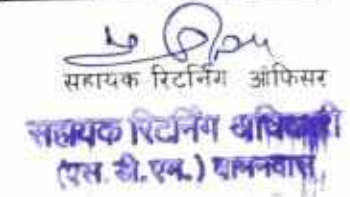 सहायक रिटर्निंग ऑफिसर
सहायक रिटर्निंग अधिकारी
(एस.डी.एम.) बामनवास